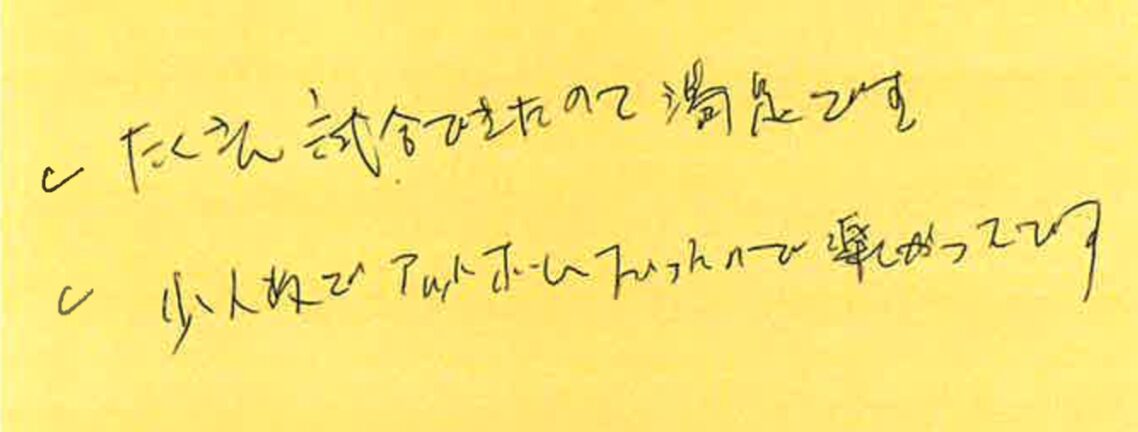 ✓ たくさん試合できたので満足です
✓ 少人数でアットホームだったので楽しかったです